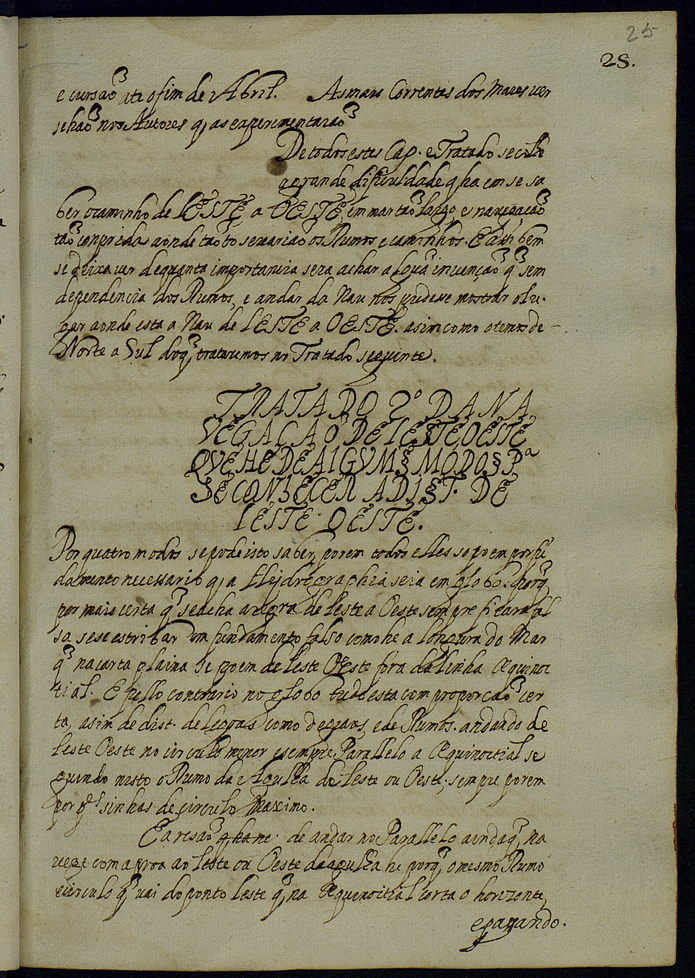 25
25.
e cursaõ ate o fim de Abril. As mais Correntes dos Mares ver
sehaõ nos Autores q̃ as experimentaraõ
De todos estes Cap. e Tratado se colhe
a grande difficuldade q̃ ha em se sa
ber o caminho de LESTE a OESTE em mar taõ largo, e navegaçaõ
taõ comprida aonde tanto se variaõ os Rumos e caminhos. E daqui bem
se deixa ver de quanta importancia sera achar algũa invençaõ q̃ sem
dependencia dos Rumos, e andar da Nau nos pudese mostrar o lu-
gar aonde esta a Nau de LESTE a OESTE. asim como o temos de
Norte a Sul do q̃ trataremos no Tratado seguinte.
TRATADO 2º DA NA
VEGAÇAÕ DE LESTE OESTE
QUE HE DE ALGUMS MODOS P.ª
SE CONHECER A DIST. DE
LESTE OESTE.
Por quatro modos se pode isto saber, porem todos elles supoem por fu
damento necessario q̃ a Hydrographia seia em globo: porq̃
por mais certa q̃ se acha a regra de leste a Oeste sempre ficara fal
sa se se estribar em fundamento falso como he a longura do Mar
q̃ na carta plaina se poem de leste Oeste fora da linha Æquinoc
tial. E pello contrario no globo tudo esta com proporcaõ cer
ta, asim de dist. de legoas como de graos, e de Rumos. andando de
leste Oeste no circulo menor e sempre Parallelo a Æquinoctial se
guindo nesto o Rumo da Agulha de leste ou Oeste, sempre porem
por linhas de circulo Maximo.
E a resaõ q̃ ha de andar no Parallelo ainda q̃ na
vege com a proa ao leste ou Oeste da agulha he porq̃ o mesmo Rumo
e circulo q̃ vai do ponto leste q̃ na Æquinoctial corta o horizonte,
e pasando.